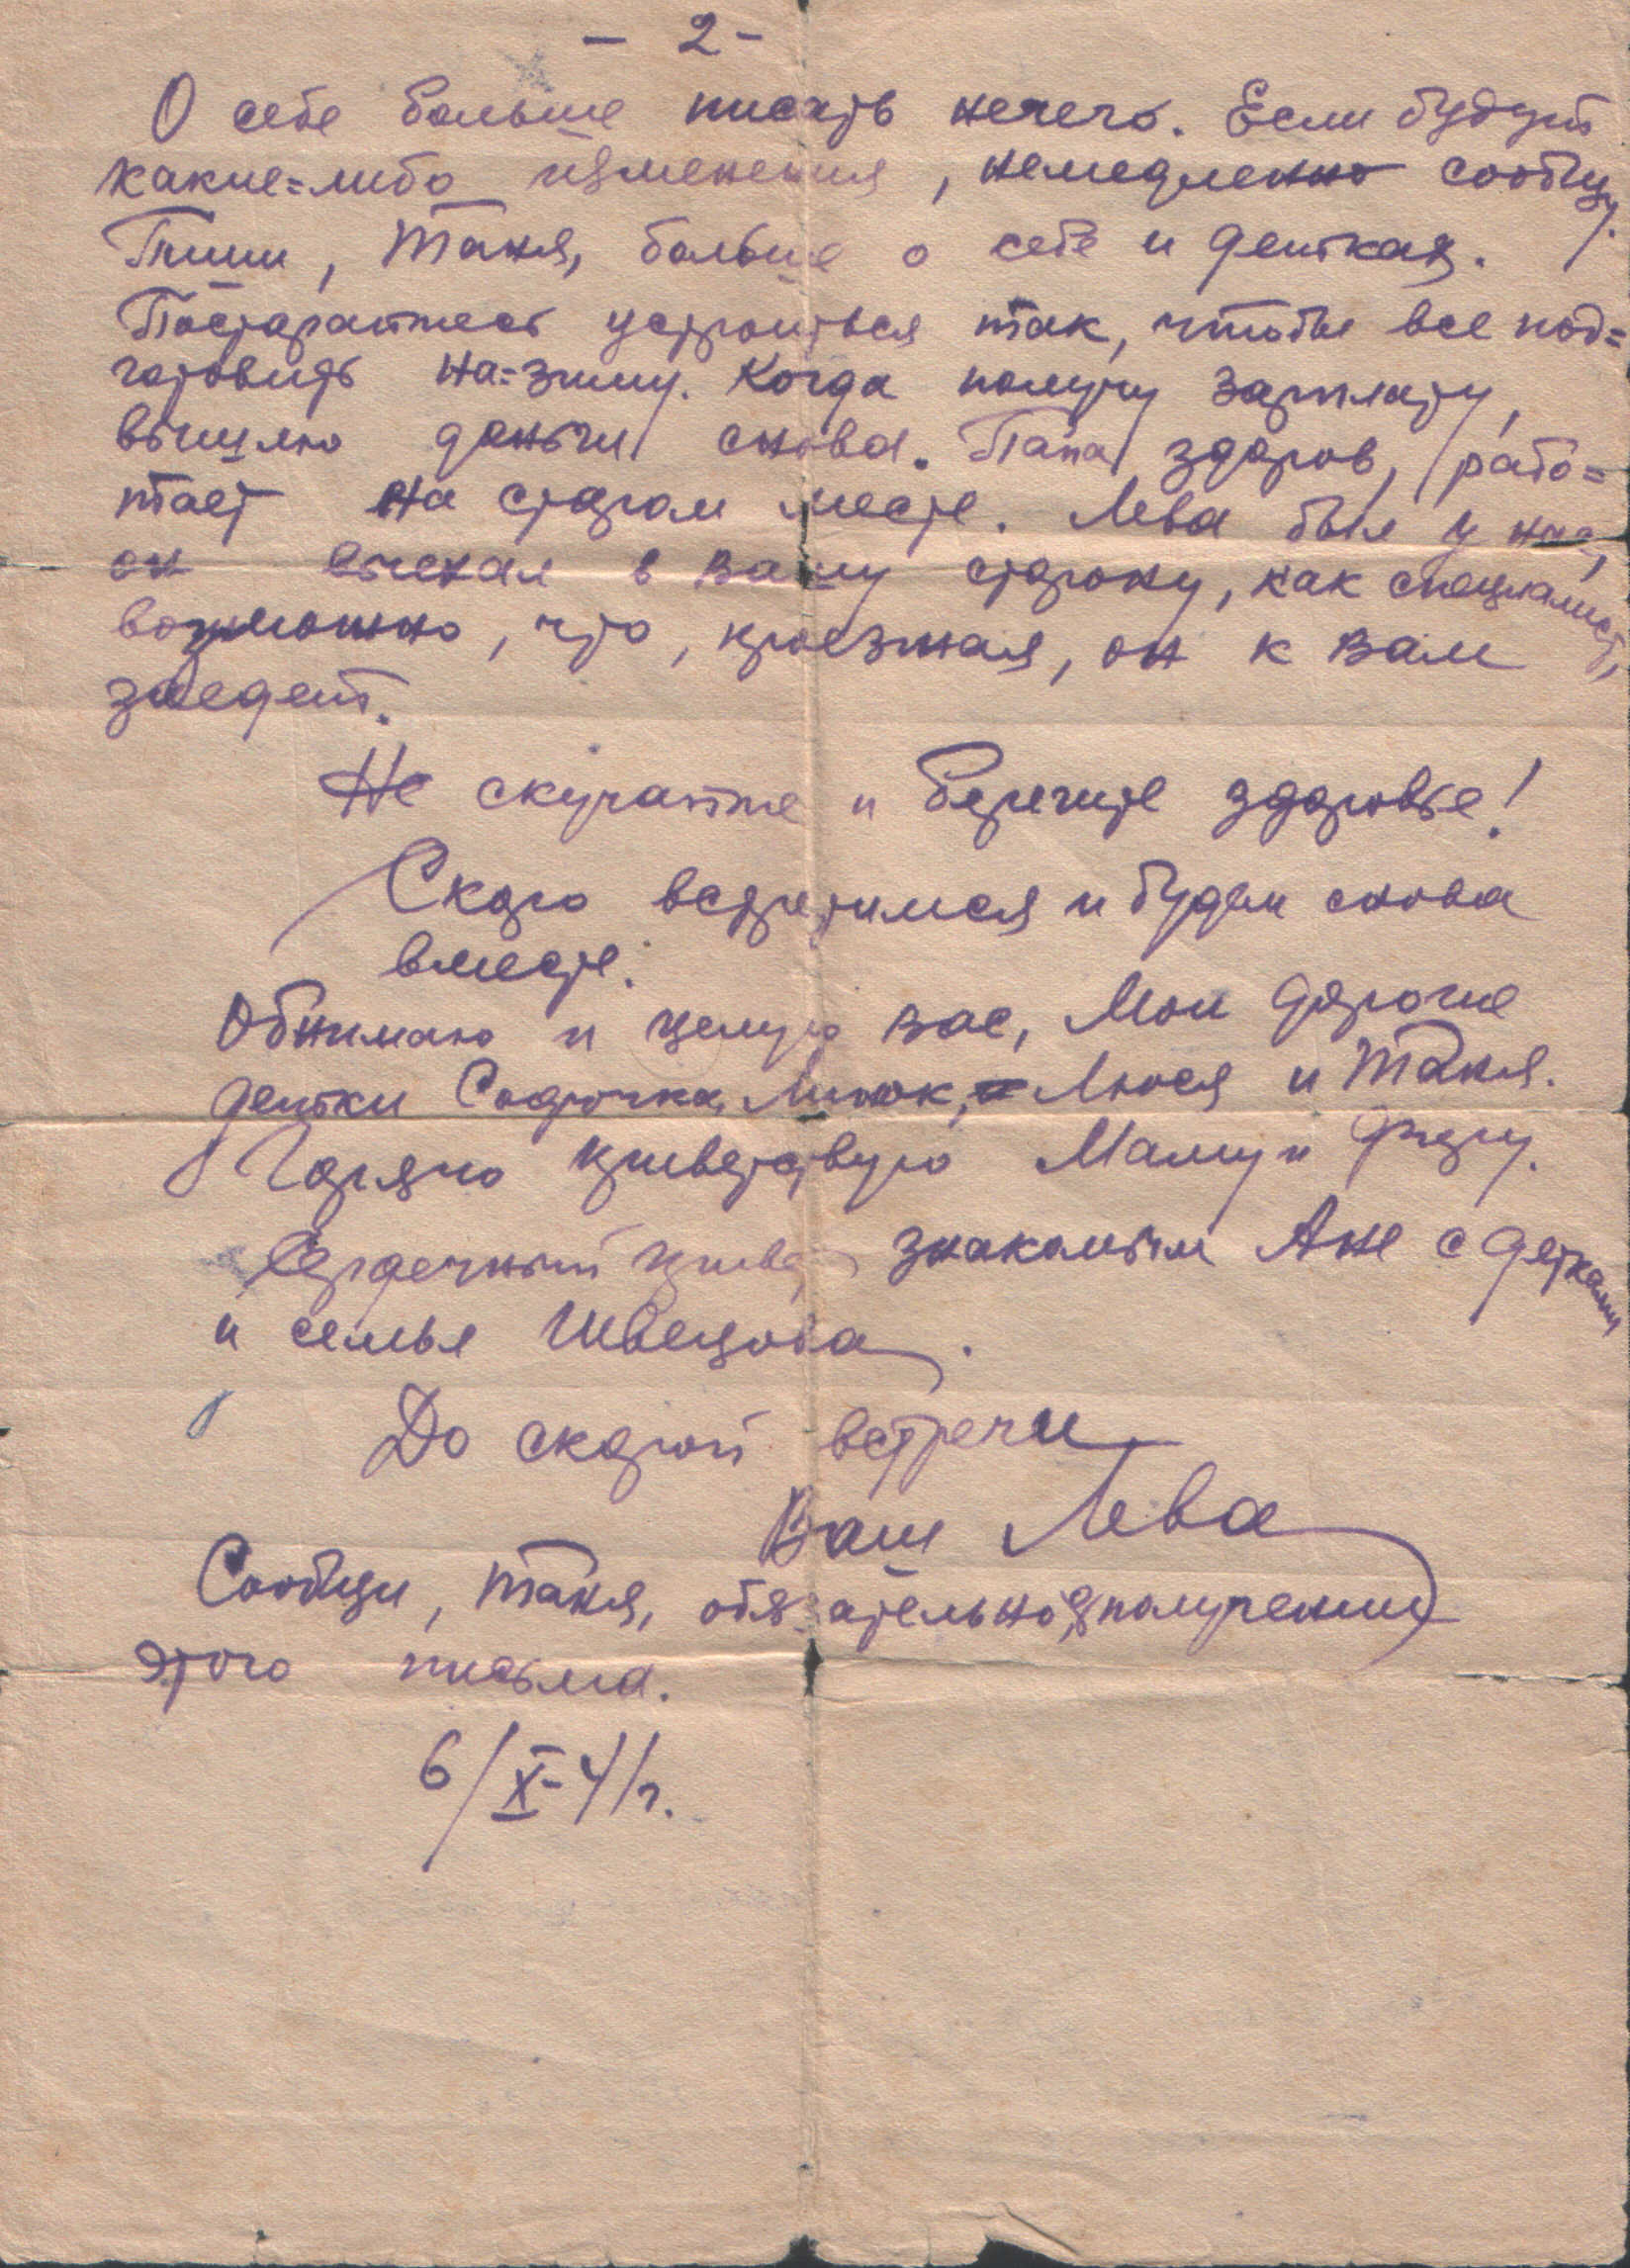 - 2 -
О себе больше писать нечего. Если будут
какие=либо изменения, немедленно сообщу.
Пиши, Таня, больше о себе и детках.
Постарайтесь устроиться так, чтобы все под=
готовить на=зиму. Когда получу зарплату,
вышлю деньги снова. Папа здоров, рабо=
тает на старом месте. Лева был у нас,
он выехал в вашу сторону, как специалист,
возможно, что, проезжая, он к вам
заедет.
Не скучайте и берегите здоровье!
Скоро встретимся и будем снова
вместе.
Обнимаю и целую вас, Мои дорогие
детки Людочка, Минок, Люся и Таня.
Горячо приветствую Маму и Фиру.
Сердечный привет знакомым Ане с детками
и семье Швецова.
До скорой встречи
Ваш Лева
Сообщи, Таня, обязательно, о получении
этого письма.
6/X-41г.